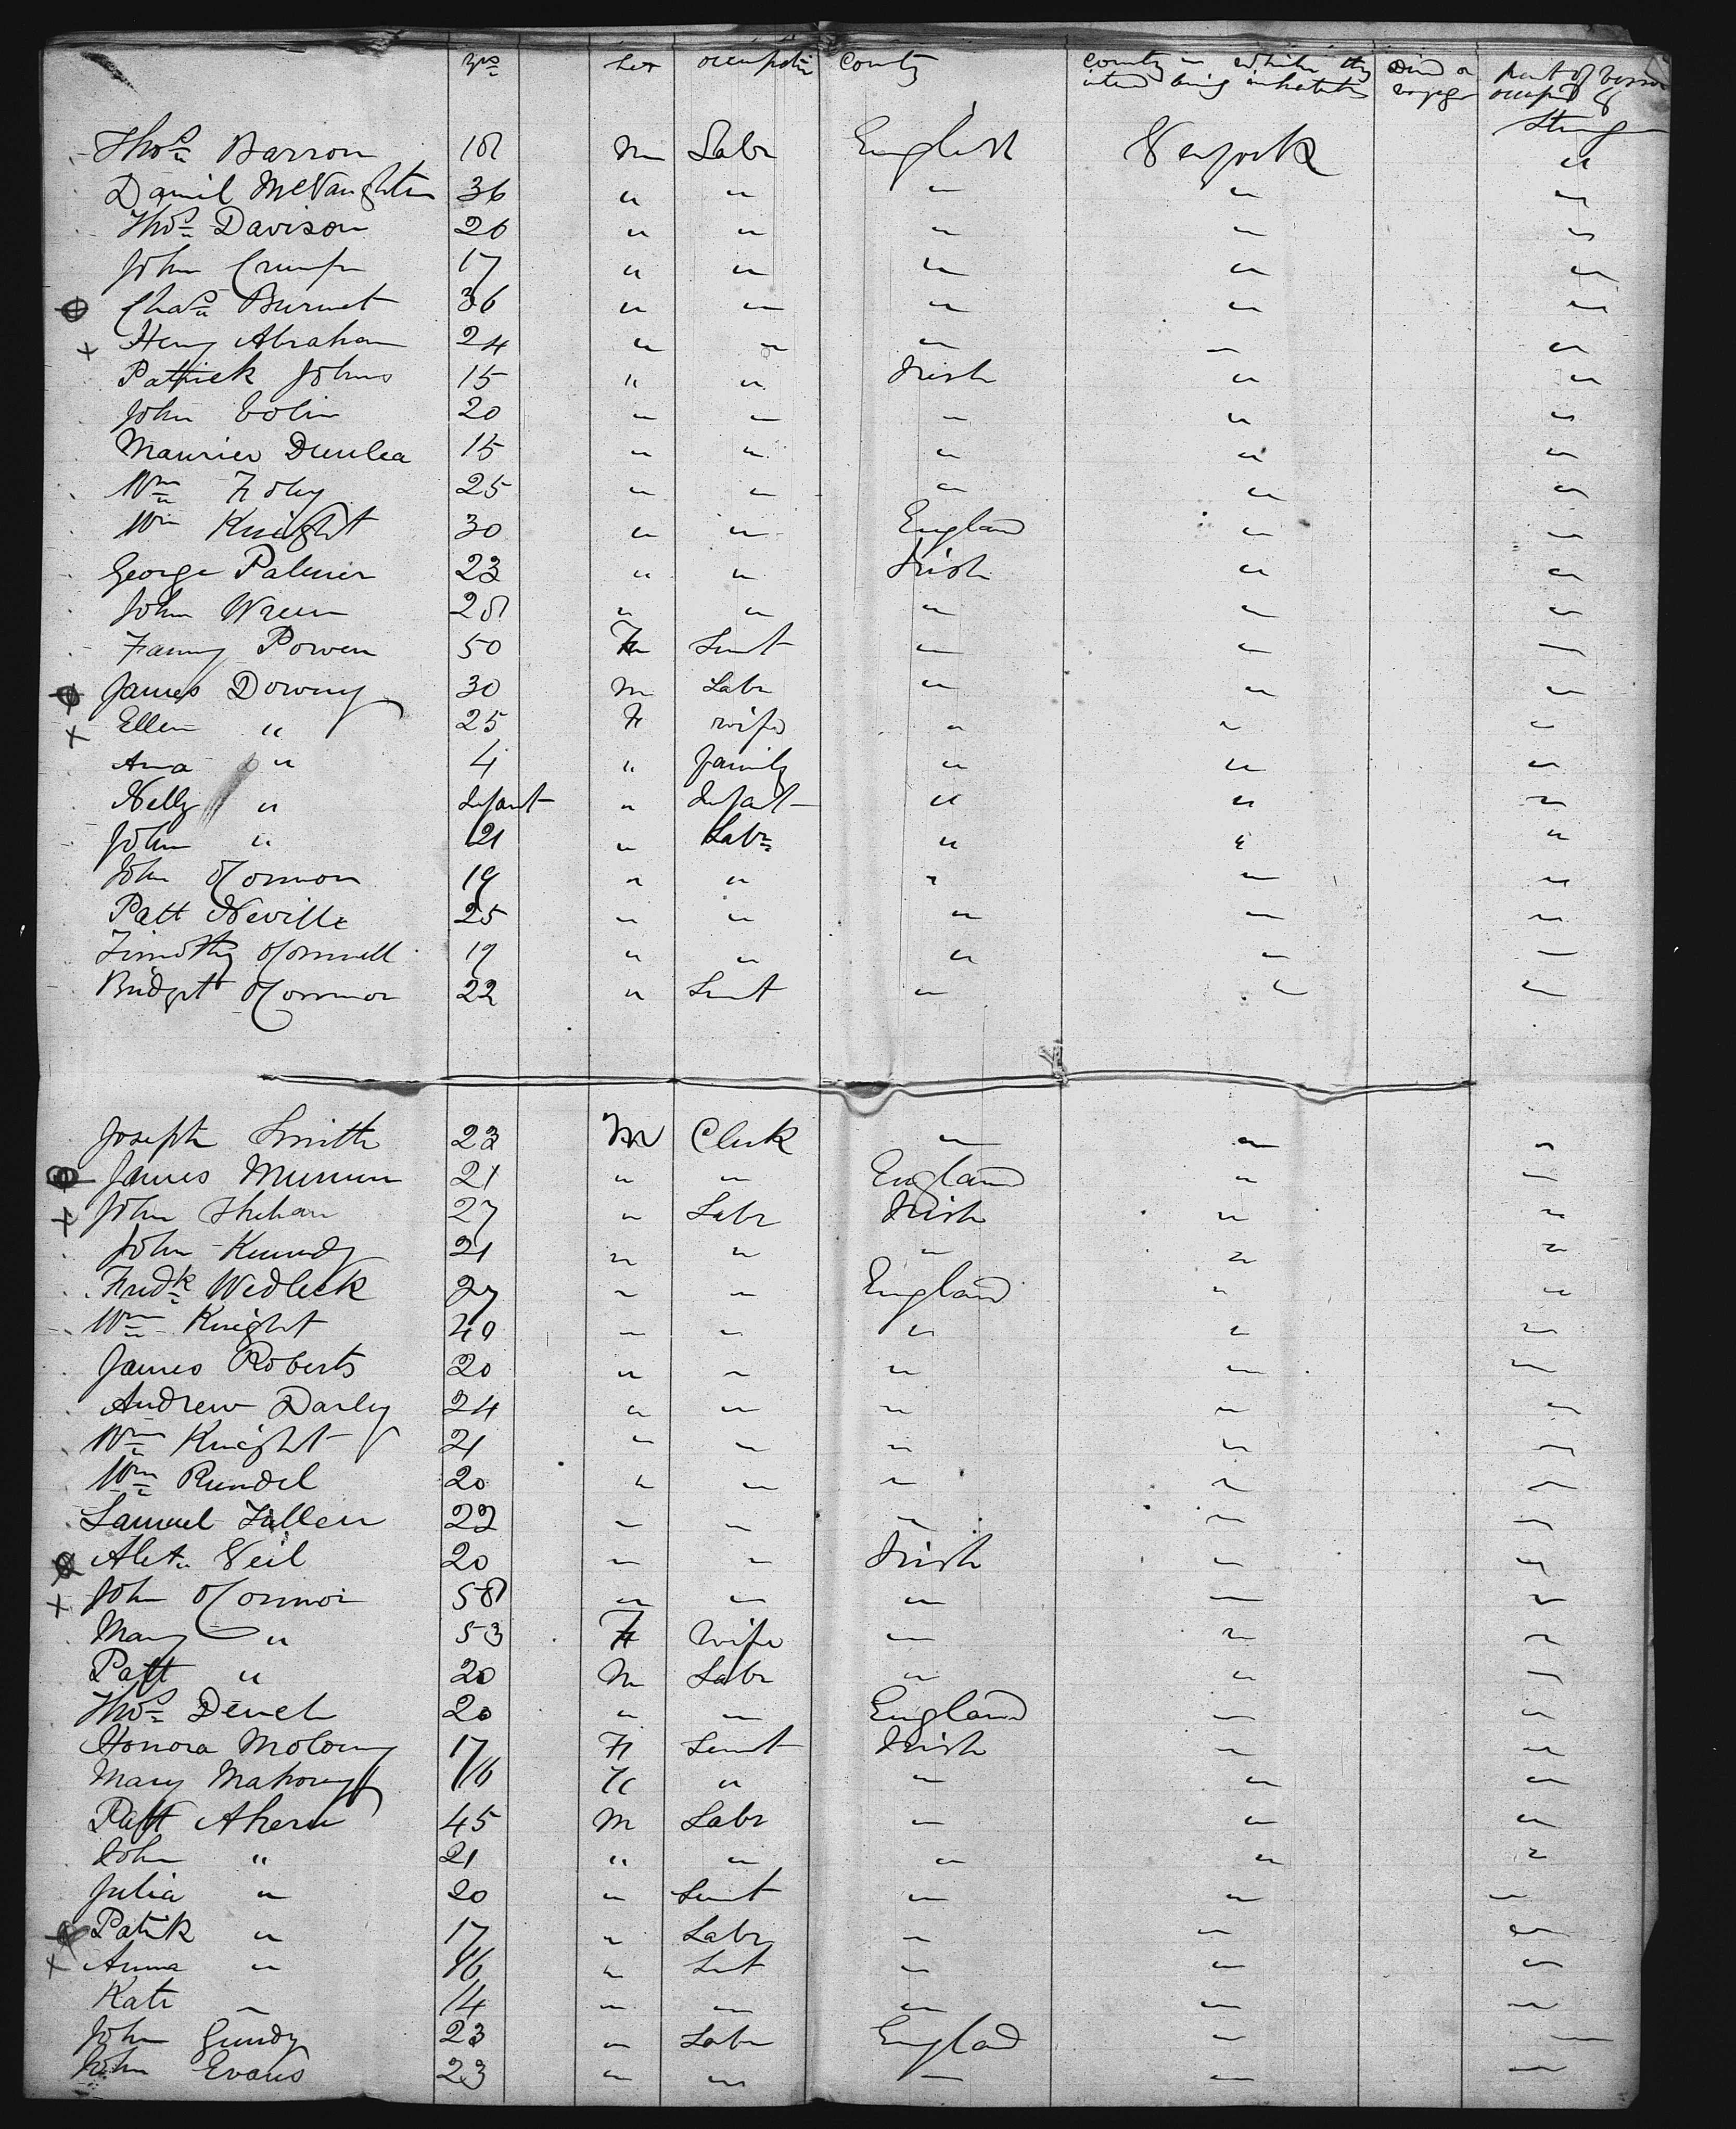 yrs Sex occupatin County County in which they Died on part of vessel
intend being inhabitants voyage occupied
Thos Barron 18 M Labr English Newyork Steerage "
Daniel McNaughten 36 " " " " "
Thos Davison 26 " " " " "
John Crump 17 " " " " "
Chas Burnet 36 " " " " "
Henry Abraham 24 " " " " "
Patrick Johns 15 " " Irish " "
John Colin 20 " " " " "
Maurice Dunlea 15 " " " " "
Wm Foley 25 " " " " "
Wm Knight 30 " " England " "
George Palmer 23 " " Irish " "
John Wrenn 28 " " " " "
Fanny Power 50 F Sernt " " "
James Downy 30 M Labr " " "
Ellen " 25 F wife " " "
Ana " 4 " family " " "
Nelly " Infant " Infant " " "
John " 21 " Labr " " "
John O'Connor 19 " " " " "
Patt Neville 25 " " " " "
Timothy O'Connell 19 " " " " "
Bridget O'Connor 22 " Sernt " " "
Joseph Smith 23 M Clerk " " "
James Munum 21 " " England " "
John Shehan 27 " Labr Irish " "
John Kennedy 21 " " " " "
Fredk Wedlock 27 " " England " "
Wm Knight 40 " " " " "
James Roberts 20 " " " " "
Andrew Darley 24 " " " " "
Wm Knight 21 " " " " "
Wm Rundel 20 " " " " "
Samuel Fallen 22 " " " " "
Alex Neil 20 " " Irish " "
John O'Connor 58 " " " " "
Mary " 53 F Wife " " "
Patt " 20 M Labr " " "
Thos Dench 20 " " England " "
Honora Molony 17 F Sernt Irish " "
Mary Mahony 16 F " " " "
Patt Ahern 45 M Labr " " "
John " 21 " " " " "
Julia " 20 " Sernt " " "
Patrk " 17 " Labr " " "
Anna " 16 " Sert " " "
Kate " 14 " " " " "
John Gundy 23 " Labr Englad " "
John Evans 23 " " " " "